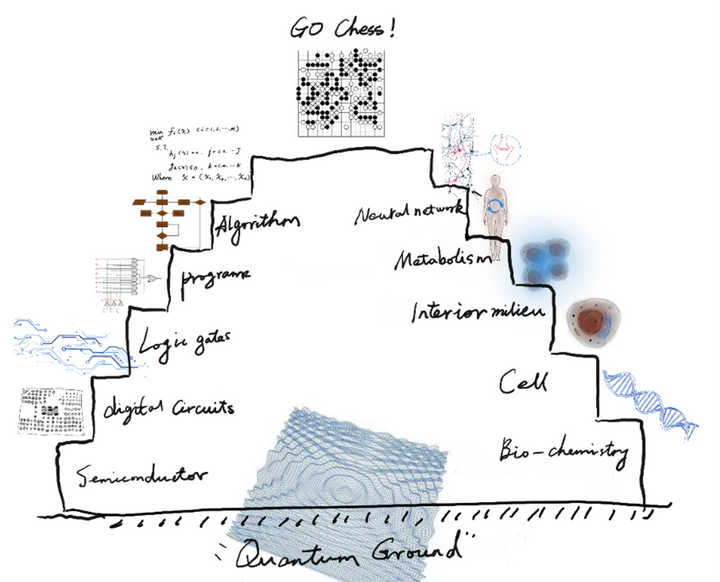 GO Chess!
min fi(x) (i=1,2,...,M)
S.T.
Where
Algorithm
programe
Logic gates
digital circuits
Semiconductor
Neutral network
Metabolism
Interior milieu
Cell
Bio-chemistry
"Quantum Ground"